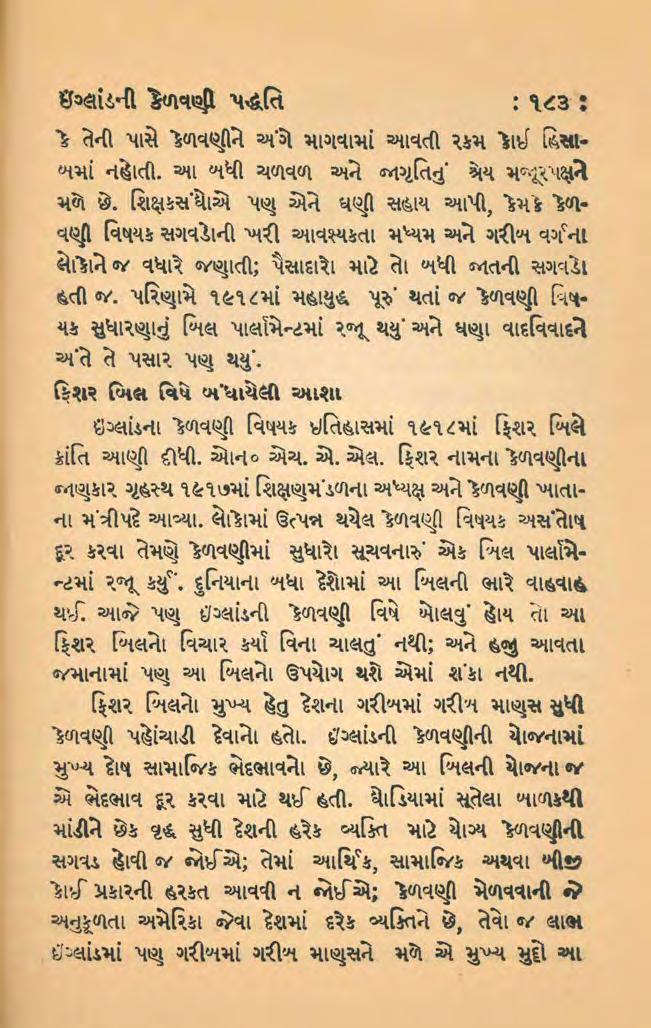 ઇંગ્લાંડની કેળવણી પદ્ધતિ : ૧૮૩ :
કે તેની પાસે કેળવણીને અંગે માગવામાં આવતી રકમ કોઈ હિસા-
બમાં નહોતી. આ બધી ચળવળ અને જાગૃતિનું શ્રેય મજૂરપક્ષને
મળે છે. શિક્ષકસંઘોએ પણ એને ઘણી સહાય આપી, કેમકે કેળ-
વણી વિષયક સગવડોની ખરી આવશ્યકતા મધ્યમ અને ગરીબ વર્ગના
લોકોને જ વધારે જણાતી; પૈસાદારો માટે તો બધી જાતની સગવડો
હતી જ. પરિણામે ૧૯૧૮માં મહાયુદ્ધ પૂરું થતાં જ કેળવણી વિષ-
યક સુધારણાનું બિલ પાર્લામેન્ટમાં રજૂ થયું અને ઘણા વાદવિવાદને
અંતે તે પસાર પણ થયું.
ફિશર બિલ વિષે બંધાયેલી આશા
ઇંગ્લાંડના કેળવણી વિષયક ઇતિહાસમાં ૧૯૧૮માં ફિશર બિલે
ક્રાંતિ આણી દીધી. ઓન૦ એચ. એ. એલ. ફિશર નામના કેળવણીના
જાણકાર ગૃહસ્થ ૧૯૧૭માં શિક્ષણમંડળના અધ્યક્ષ અને કેળવણી ખાતા-
ના મંત્રીપદે આવ્યા. લોકોમાં ઉત્પન્ન થયેલ કેળવણી વિષયક અસંતોષ
દૂર કરવા તેમણે કેળવણીમાં સુધારો સૂચવનારું એક બિલ પાર્લામે-
ન્ટમાં રજૂ કર્યું. દુનિયાના બધા દેશોમાં આ બિલની ભારે વાહવાહ
થઈ. આજે પણ ઇંગ્લાંડની કેળવણી વિષે બોલવું હોય તો આ
ફિશર બિલનો વિચાર કર્યા વિના ચાલતું નથી; અને હજી આવતા
જમાનામાં પણ આ બિલનો ઉપયોગ થશે એમાં શંકા નથી.
ફિશર બિલનો મુખ્ય હેતુ દેશના ગરીબમાં ગરીબ માણસ સુધી
કેળવણી પહોંચાડી દેવાનો હતો. ઇંગ્લાંડની કેળવણીની યોજનામાં
મુખ્ય દોષ સામાજિક ભેદભાવનો છે, જ્યારે આ બિલની યોજના જ
એ ભેદભાવ દૂર કરવા માટે થઈ હતી. ઘોડિયામાં સૂતેલા બાળકથી
માંડીને છેક વૃદ્ધ સુધી દેશની હરેક વ્યક્તિ માટે યોગ્ય કેળવણીની
સગવડ હોવી જ જોઈએ; તેમાં આર્થિક, સામાજિક અથવા બીજી
કોઈ પ્રકારની હરકત આવવી ન જોઈએ; કેળવણી મેળવવાની જે
અનુકૂળતા અમેરિકા જેવા દેશમાં દરેક વ્યક્તિને છે, તેવો જ લાભ
ઇંગ્લાંડમાં પણ ગરીબમાં ગરીબ માણસને મળે એ મુખ્ય મુદ્દો આ